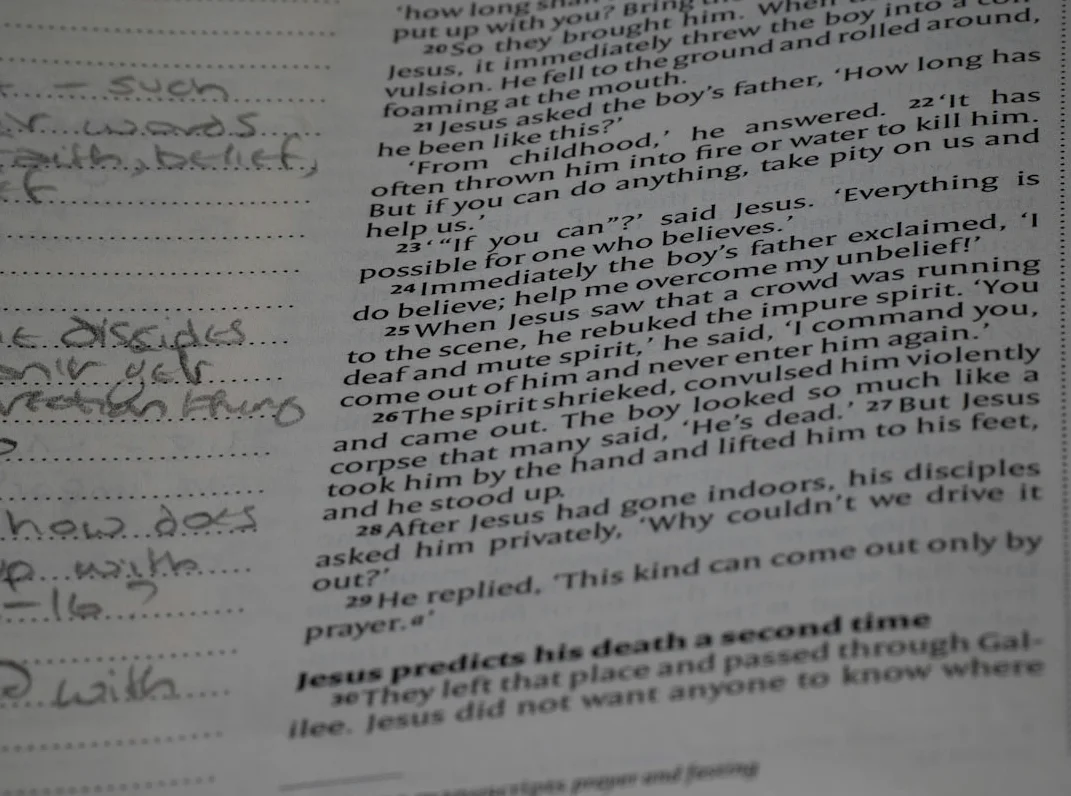 - such
words
faith, belief,
disciples
yet
thing
how does
with
-16?
with
'how long
put up with you? Bring
20 So they brought him. When
Jesus, it immediately threw the boy into a con-
vulsion. He fell to the ground and rolled around,
foaming at the mouth.
21 Jesus asked the boy's father, 'How long has
he been like this?'
'From childhood,' he answered. 22 'It has
often thrown him into fire or water to kill him.
But if you can do anything, take pity on us and
help us.'
23 '"If you can"?' said Jesus. 'Everything is
possible for one who believes.'
24 Immediately the boy's father exclaimed, 'I
do believe; help me overcome my unbelief!'
25 When Jesus saw that a crowd was running
to the scene, he rebuked the impure spirit. 'You
deaf and mute spirit,' he said, 'I command you,
come out of him and never enter him again.'
26 The spirit shrieked, convulsed him violently
and came out. The boy looked so much like a
corpse that many said, 'He's dead.' 27 But Jesus
took him by the hand and lifted him to his feet,
and he stood up.
28 After Jesus had gone indoors, his disciples
asked him privately, 'Why couldn't we drive it
out?'
29 He replied, 'This kind can come out only by
prayer.a'
Jesus predicts his death a second time
30 They left that place and passed through Gal-
ilee. Jesus did not want anyone to know where
manuscripts prayer and fasting